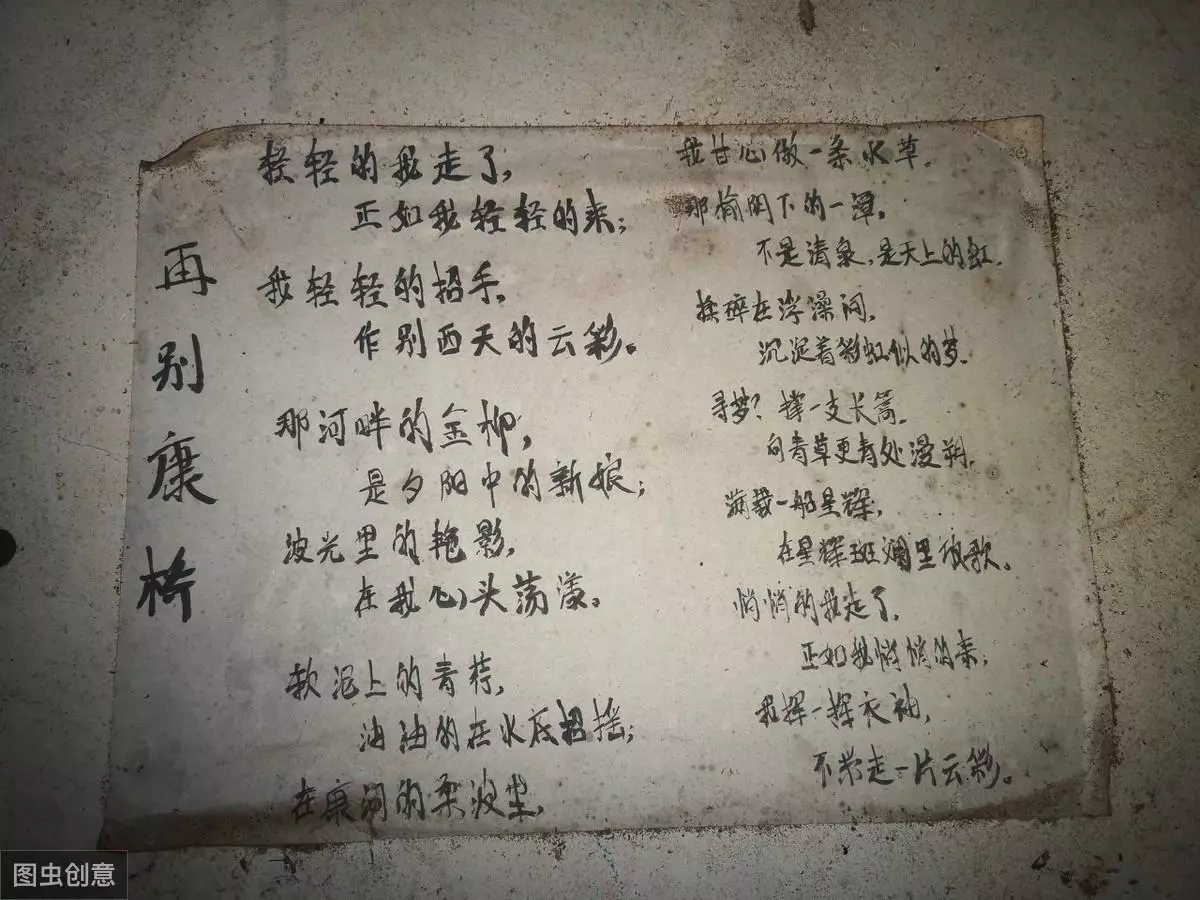 再别康桥
轻轻的我走了,
正如我轻轻的来;
我轻轻的招手,
作别西天的云彩。
那河畔的金柳,
是夕阳中的新娘;
波光里的艳影,
在我心头荡漾。
软泥上的青荇,
油油的在水底招摇;
在康河的柔波里,
我甘心做一条水草。
那榆阴下的一潭,
不是清泉,是天上的虹,
揉碎在浮藻间,
沉淀着彩虹似的梦。
寻梦?撑一支长篙,
向青草更青处漫朔,
满载一船星辉,
在星辉斑斓里放歌。
悄悄的我走了,
正如我悄悄的来;
我挥一挥衣袖,
不带走一片云彩。
图虫创意